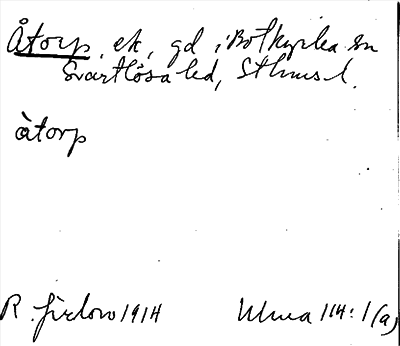 Åtorp, ek, gd i Botkyrka sn
Svartlösa hd, Sthms l.
åtorp
R. 1914 Ulma 114:1(a)